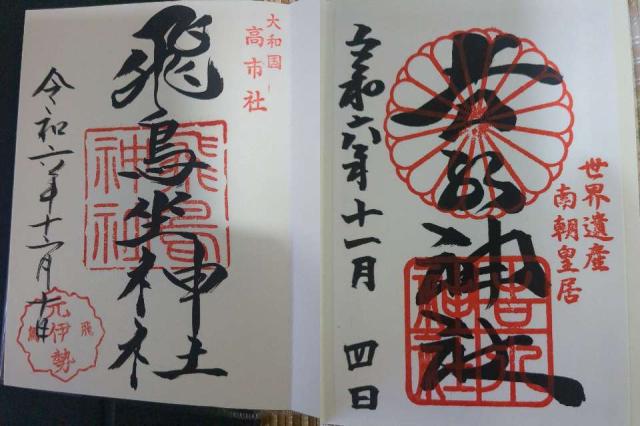 世界遺産
南朝皇居
吉水神社
令和六年十一月 四日
大和国
高市社
飛鳥坐神社
飛鳥
神社
令和六年十一月十日
元伊勢